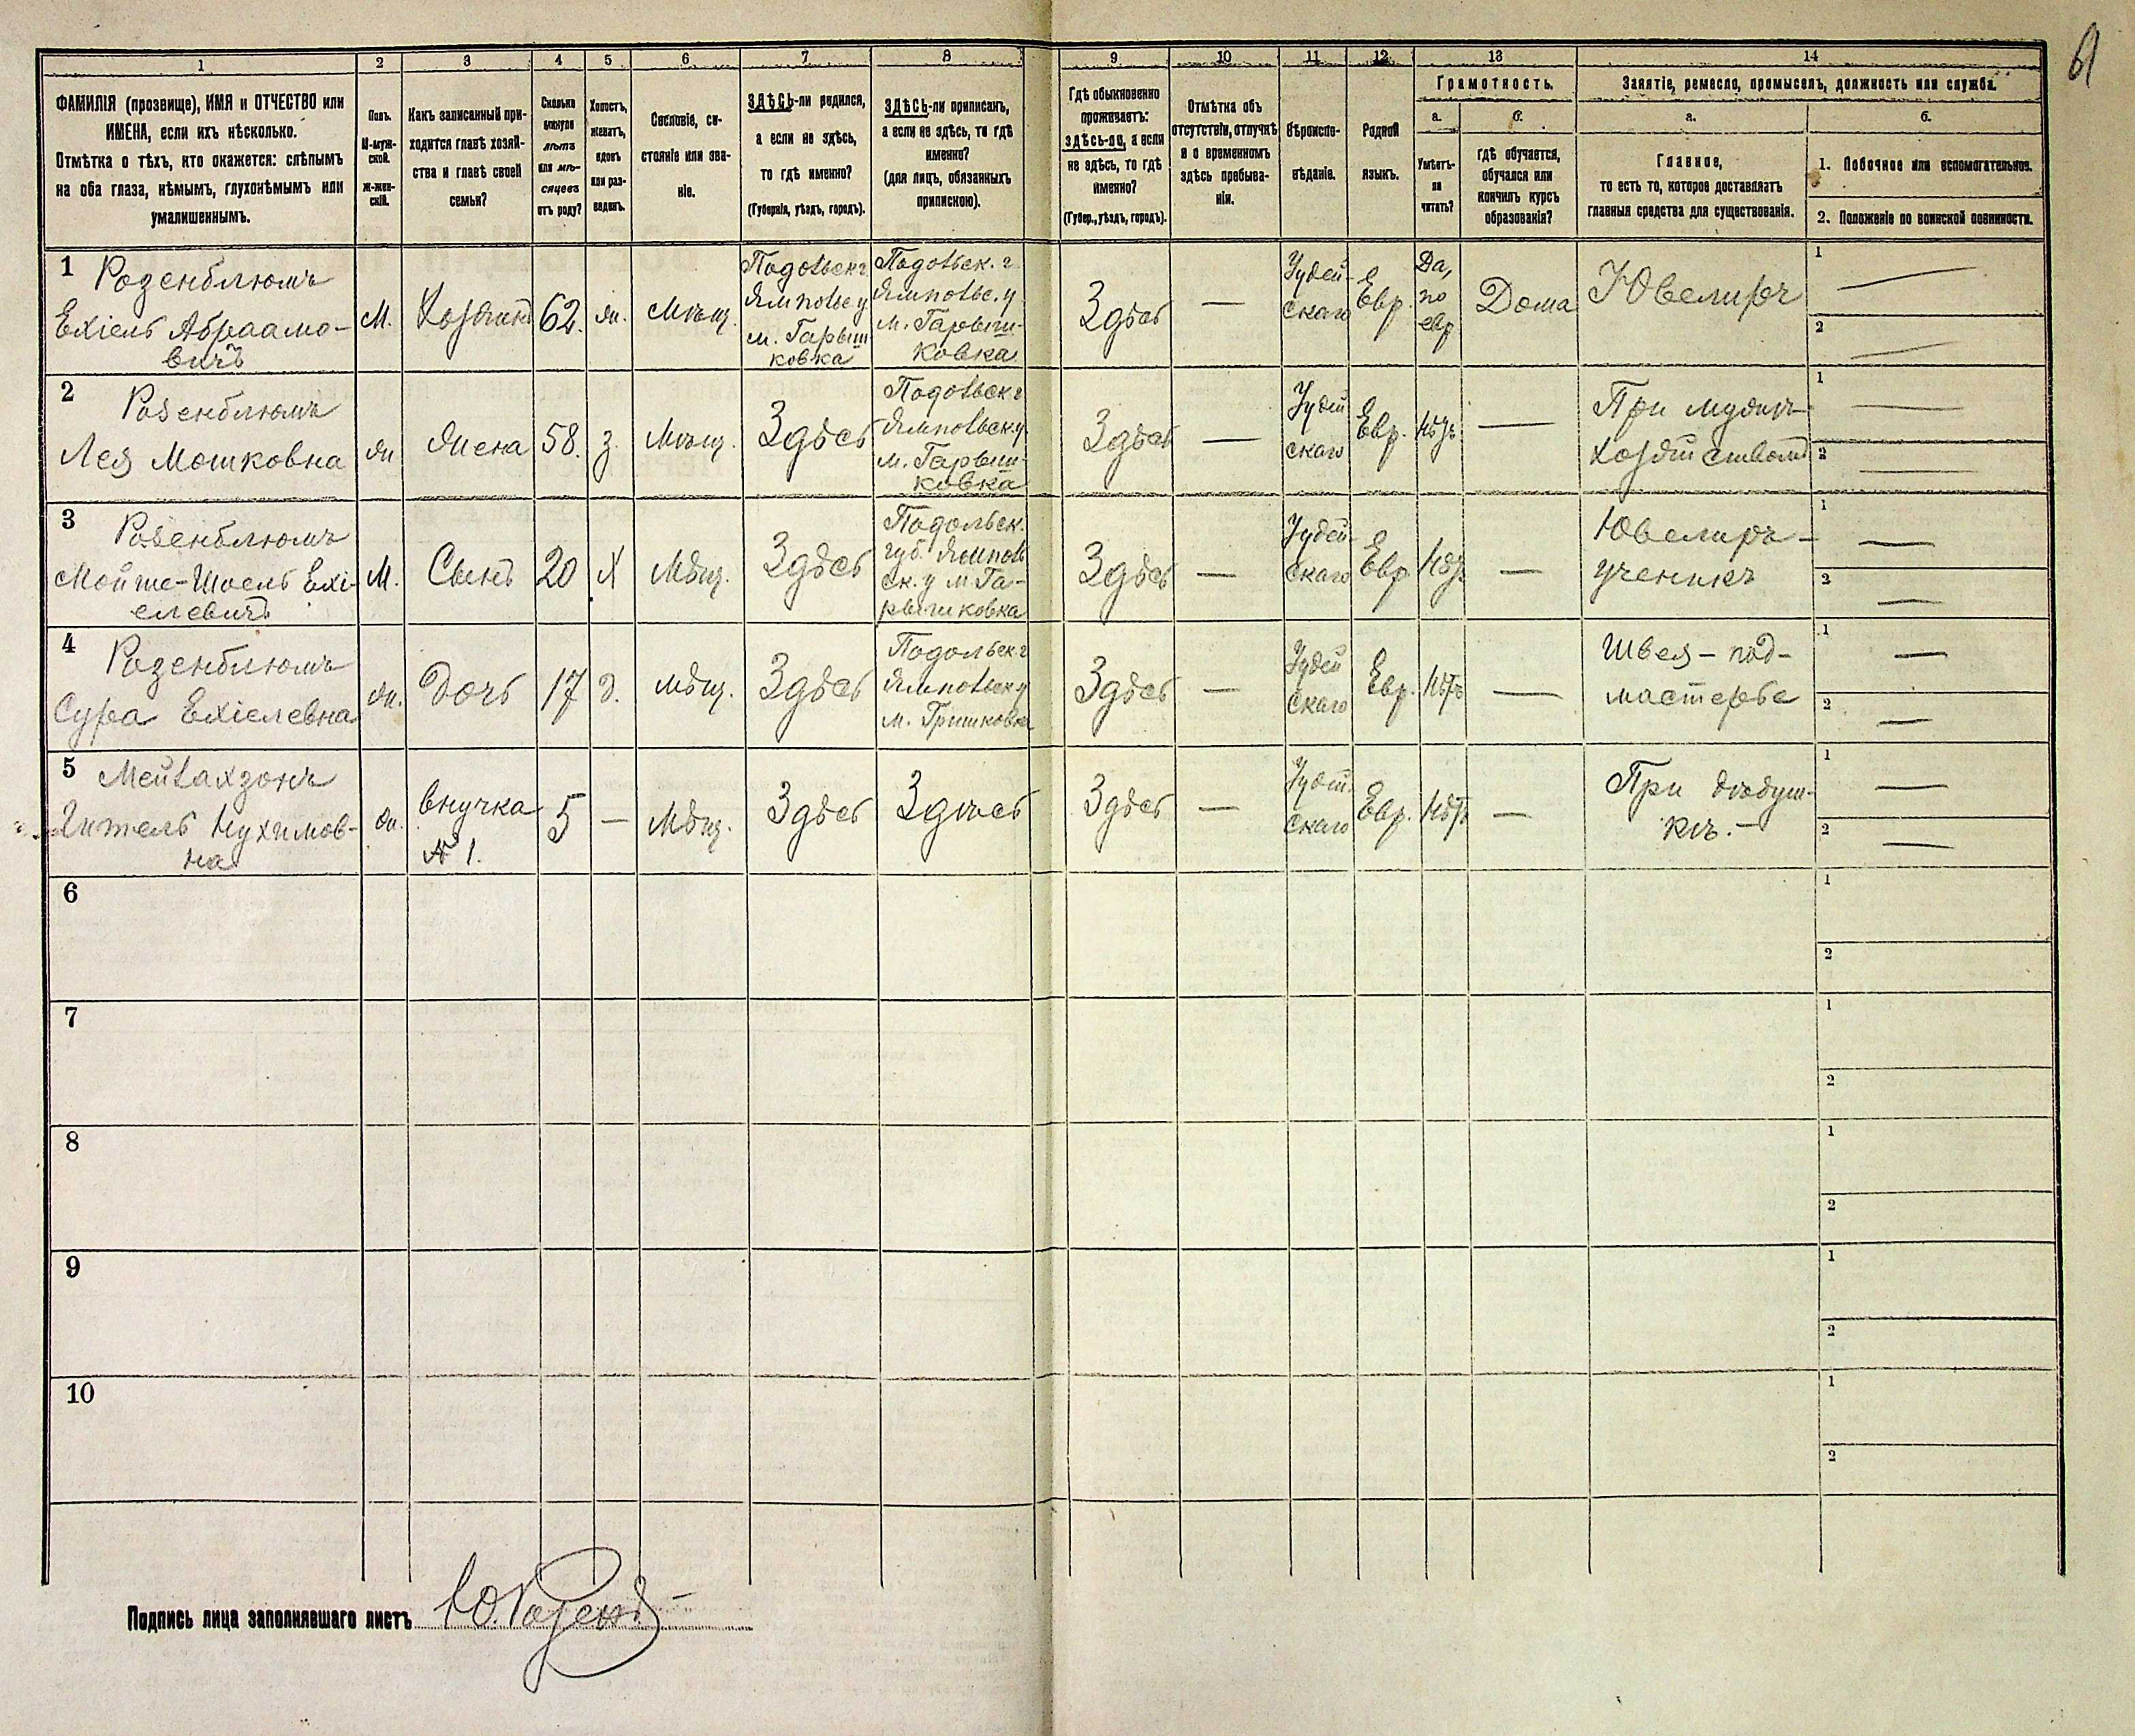 61
1 2 3 4 5 6 7 8 9 10 11 12 13 14
ФАМИЛІЯ (прозвище), ИМЯ и ОТЧЕСТВО или
ИМЕНА, если ихъ нѣсколько.
Отмѣтка о тѣхъ, кто окажется: слѣпымъ
на оба глаза, нѣмымъ, глухонѣмымъ или
умалишеннымъ.
Полъ.
М-муж-
ской.
Ж-жен-
скій.
Какъ записанный при-
ходится главѣ хозяй-
ства и главѣ своей
семьи?
Сколько
минуло
лѣтъ
или мѣ-
сяцевъ
отъ роду?
Холостъ,
женатъ,
вдовъ
или раз-
веденъ.
Сословіе, со-
стояніе или зва-
ніе.
ЗДѢСЬ-ли родился,
а если не здѣсь,
то гдѣ именно?
(Губернія, уѣздъ, городъ).
ЗДѢСЬ-ли приписанъ,
а если не здѣсь, то гдѣ
именно?
(для лицъ, обязанныхъ
припискою).
Гдѣ обыкновенно
проживаетъ:
здѣсь-ли, а если
не здѣсь, то гдѣ
именно?
(Губер., уѣздъ, городъ).
Отмѣтка объ
отсутствіи, отлучкѣ
и о временномъ
здѣсь пребыва-
ніи.
Вѣроиспо-
вѣданіе.
Родной
языкъ.
Грамотность.
а.
Умѣетъ-
ли
читать?
б.
гдѣ обучается,
обучался или
кончилъ курсъ
образованія?
Занятіе, ремесло, промыселъ, должность или служба.
а.
Главное,
то есть то, которое доставляетъ
главныя средства для существованія.
б.
1. Побочное или вспомогательное.
2. Положеніе по воинской повинности.
1 Розенблюмъ
Ехіель Абраамо-
вичъ
М.
Хозяинъ
62.
ж.
Мѣщ.
Подольск г.
Ямпольс у
м. Гарыш-
ковка
Подольск. г.
Ямпольс. у.
м. Гарыш-
ковка
Здѣсь
—
Іудей-
скаго
Евр.
Да,
по
евр
Дома
Ювелиръ
1 —
2 —
2 Розенблюмъ
Лея Мошковна
ж
Жена
58.
з.
Мѣщ.
Здѣсь
Подольск г
Ямпольск у
м. Гарыш-
ковка
Здѣсь
—
Іудей
скаго
Евр.
Нѣтъ
—
При мужѣ
хозяйством
1 —
2 —
3 Розенблюмъ
Мойше-Шоель Ехі-
елевичъ
М.
Сынъ
20
Х
Мѣщ.
Здѣсь
Подольск.
губ. Ямполь
ск. у м Га-
рышковка
Здѣсь
—
Іудей-
скаго
Евр.
Нѣтъ
—
Ювелиръ-
ученикъ
1 —
2 —
4 Розенблюмъ
Сура Ехіелевна
ж.
Дочь
17
д.
мѣщ.
Здѣсь
Подольск г
Ямпольск у
м. Гришковка
Здѣсь
—
Іудей
скаго
Евр.
Нѣтъ
—
Швея – под-
мастерье
1 —
2 —
5 Мейлахзонъ
Гитель Нухимов-
на
ж.
внучка
№ 1.
5
—
Мѣщ.
Здѣсь
Здѣсь
Здѣсь
—
Іудей-
скаго
Евр.
Нѣтъ
—
При дѣдуш-
кѣ. —
1 —
2 —
6
1
2
7
1
2
8
1
2
9
1
2
10
1
2
Подпись лица заполнявшаго листъ